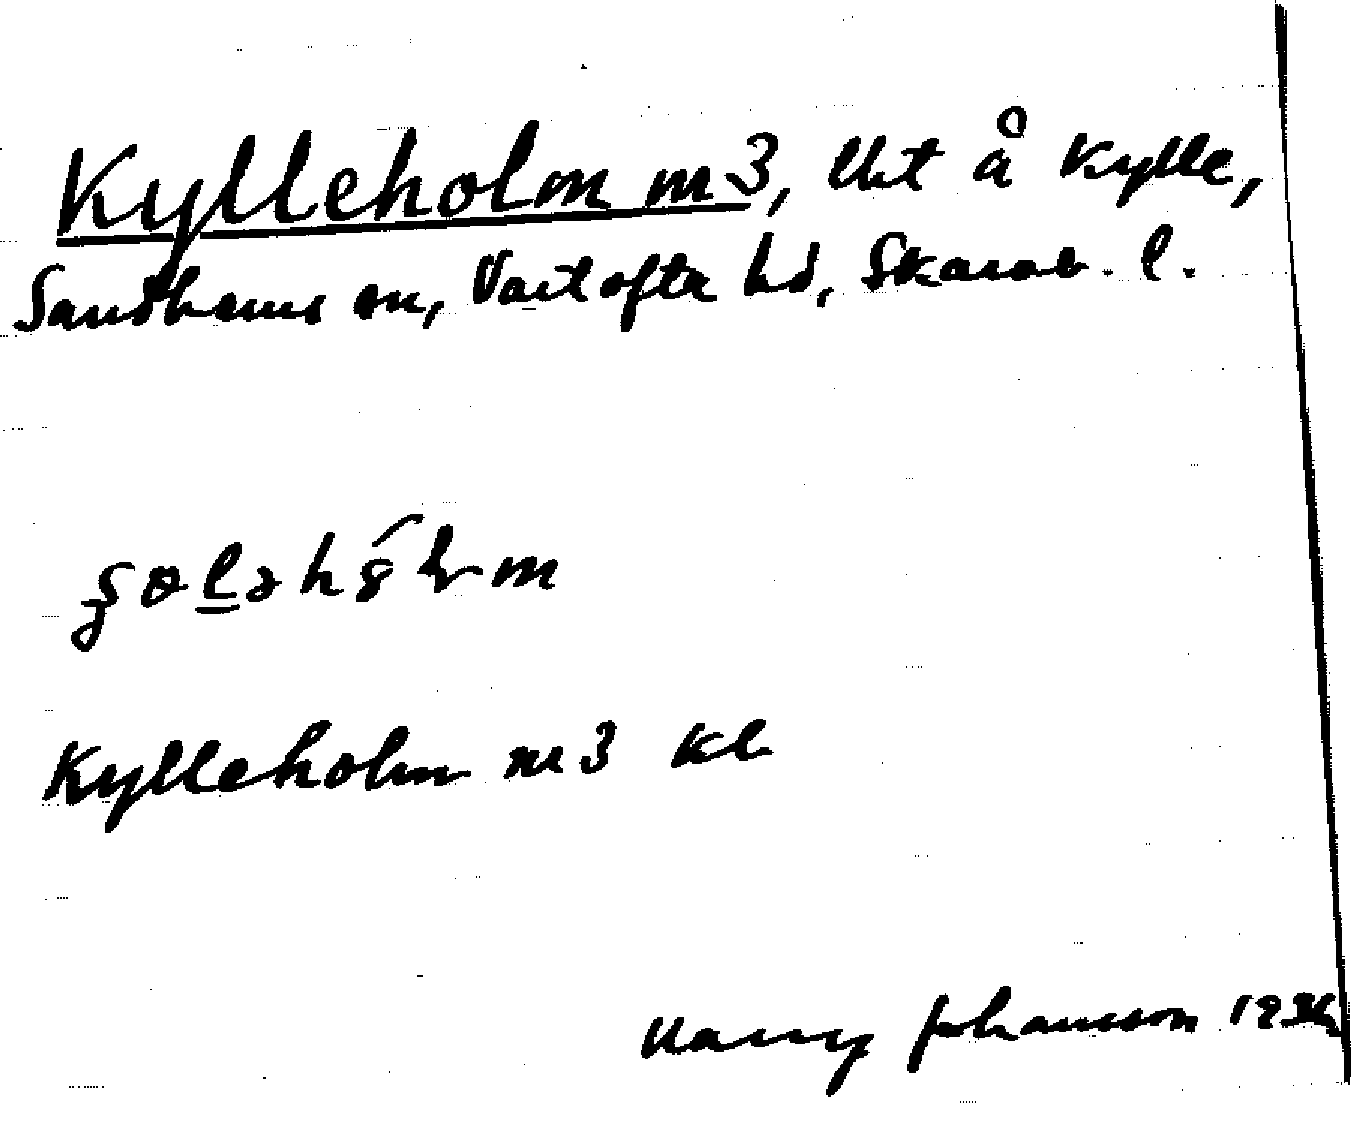 Kylleholm m3, lht å Kylle,
Sandhems sn, Vartofta hd, Skarab. l.
Kylleholm m3 kl
Harry Johansson